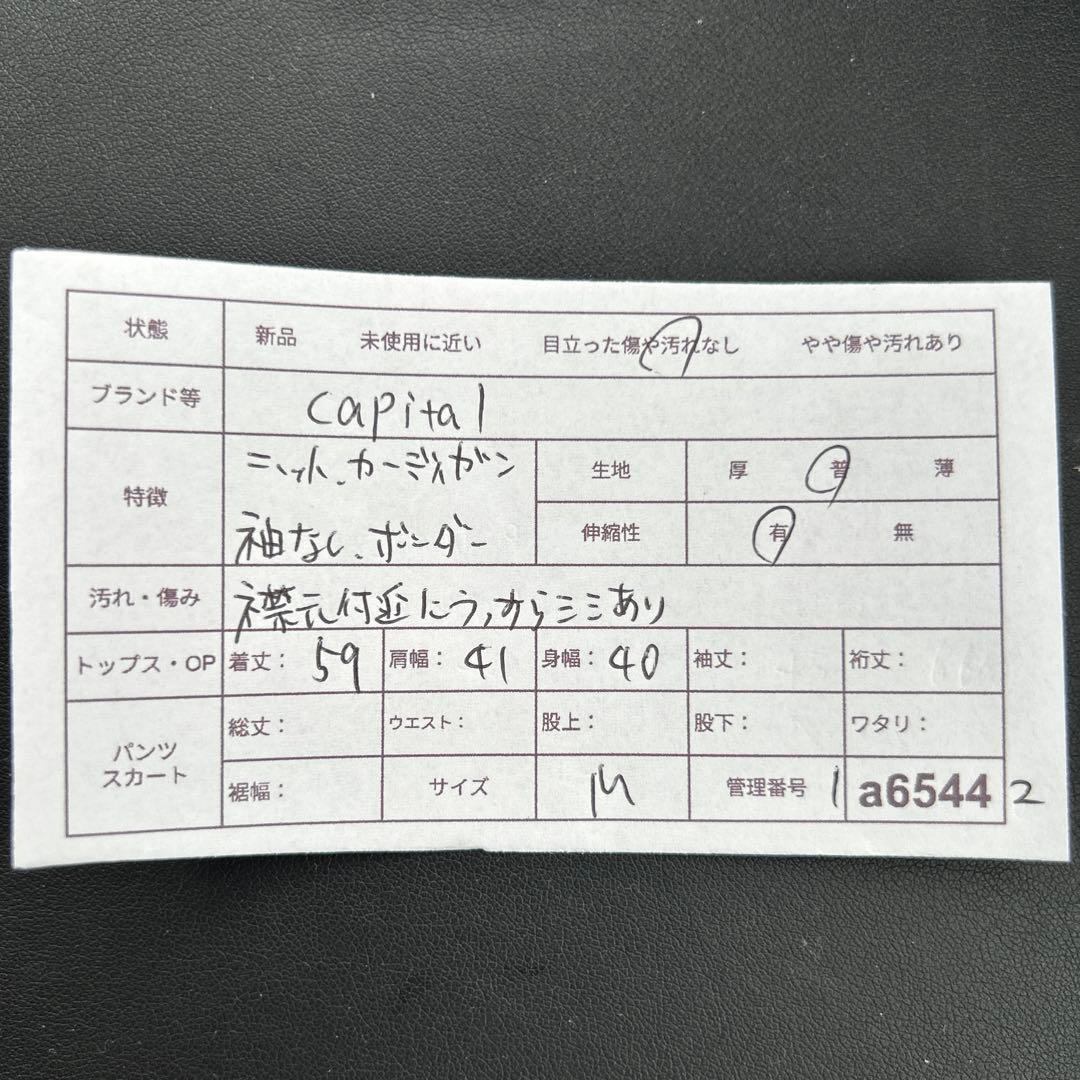 状態 新品 未使用に近い 目立った傷や汚れなし やや傷や汚れあり
ブランド等 capital
特徴 ニット、カーディガン 生地 厚 普 薄
袖なし、ボーダー 伸縮性 有 無
汚れ・傷み 襟元付近にうっすらシミあり
トップス・OP 着丈: 59 肩幅: 41 身幅: 40 袖丈: 裄丈:
パンツ 総丈: ウエスト: 股上: 股下: ワタリ:
スカート 裾幅: サイズ M 管理番号 1 a6544 2